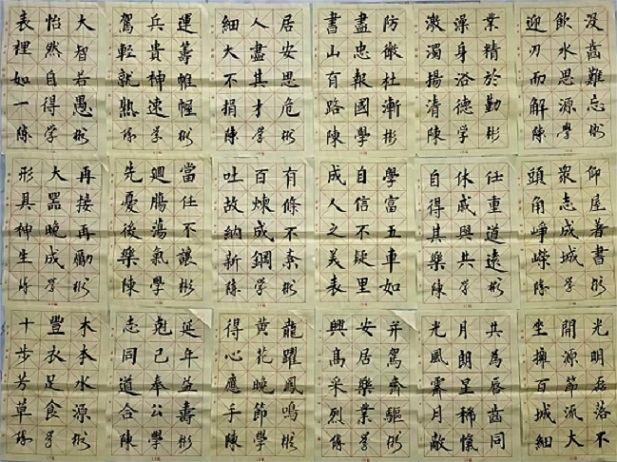 沒齒難忘彬
飲水思源學
迎刃而解陳
業精於勤彬
澡身浴德學
激濁揚清陳
防微杜漸彬
盡忠報國學
書山有路陳
居安思危彬
人盡其才學
細大不捐陳
運籌帷幄彬
兵貴神速學
駕輕就熟陳
大智若愚彬
怡然自得學
表裡如一陳
仰屋著書彬
眾志成城學
頭角崢嶸陳
任重道遠彬
休戚與共學
自得其樂陳
學富五車如
自信不疑里
成人之美表
有條不紊彬
百煉成鋼學
吐故納新陳
當任不讓彬
迴腸蕩氣學
先憂後樂陳
再接再勵彬
大器晚成學
形具神生陳
光明磊落不
開源節流大
坐擁百城細
共為唇齒同
月朗星稀愾
光風霽月敵
並駕齊驅彬
安居樂業學
興高采烈陳
龍躍鳳鳴彬
黃花晚節學
得心應手陳
延年益壽彬
克己奉公學
志同道合陳
木本水源彬
豐衣足食學
十步芳草陳